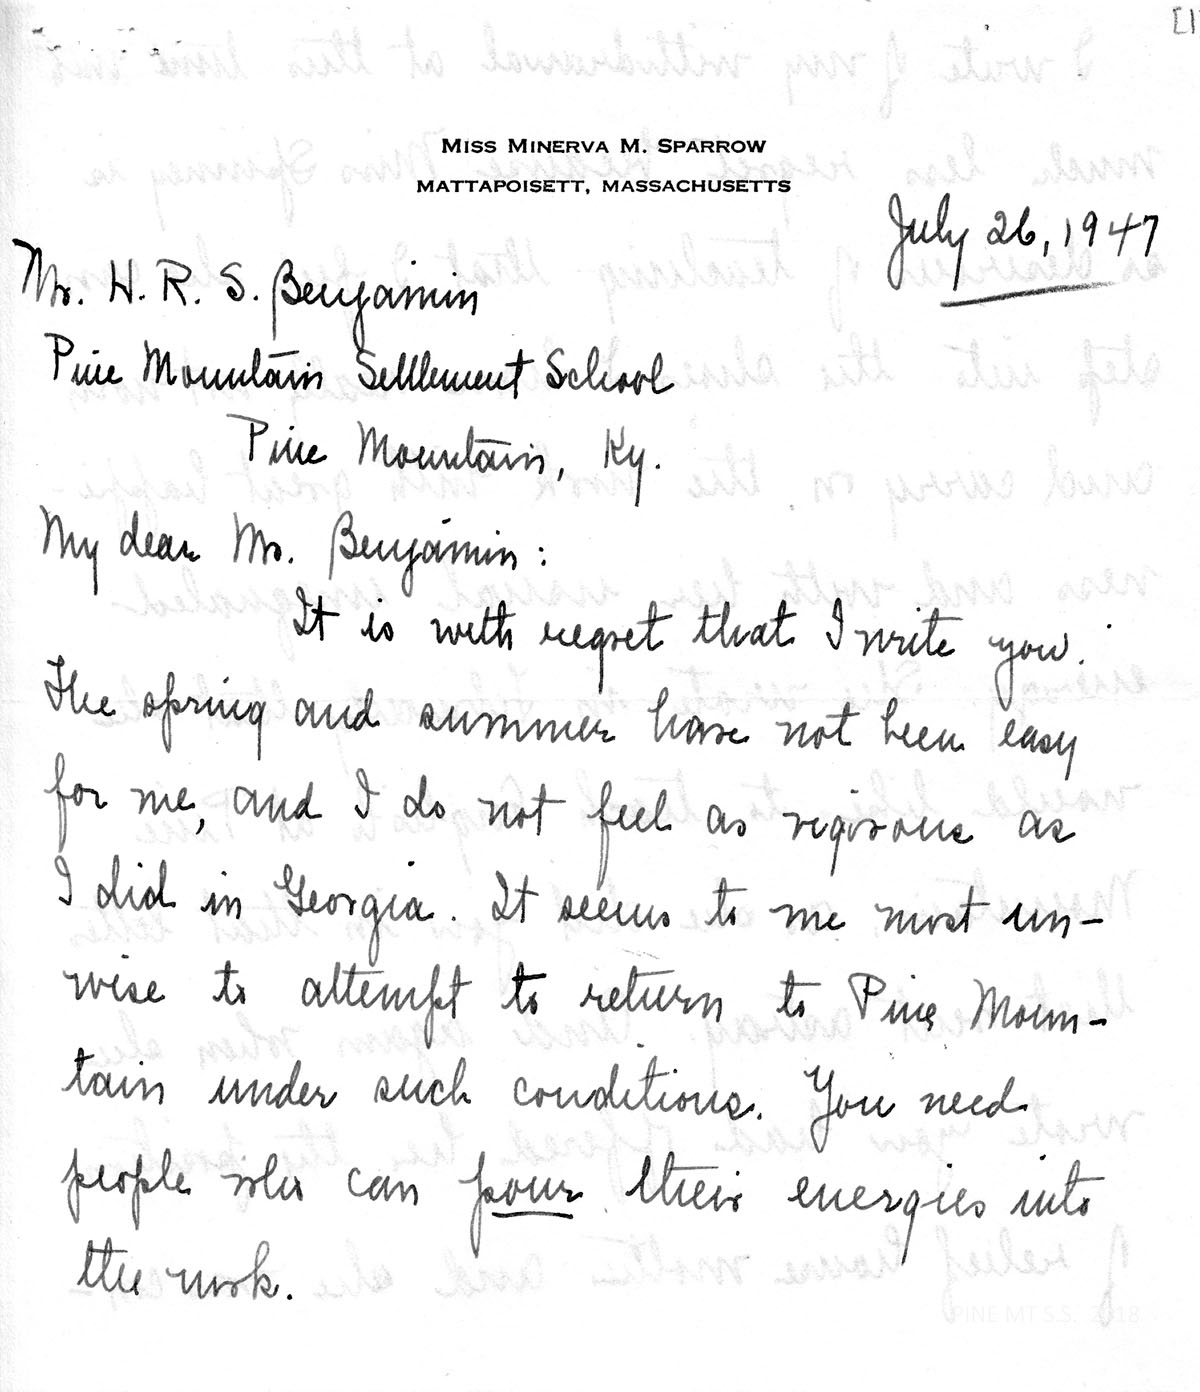 [1
MISS MINERVA M. SPARROW
MATTAPOISETT, MASSACHUSETTS
July 26, 1947
Mr. H. R. S. Benjamin
Pine Mountain Settlement School
Pine Mountain, Ky.
My dear Mr. Benjamin:
It is with regret that I write you.
The spring and summer have not been easy
for me, and I do not feel as vigorous as
I did in Georgia. It seems to me most un-
wise to attempt to return to Pine Moun-
tain under such conditions. You need
people who can pour their energies into
the work.
PINE MT S.S. 2018